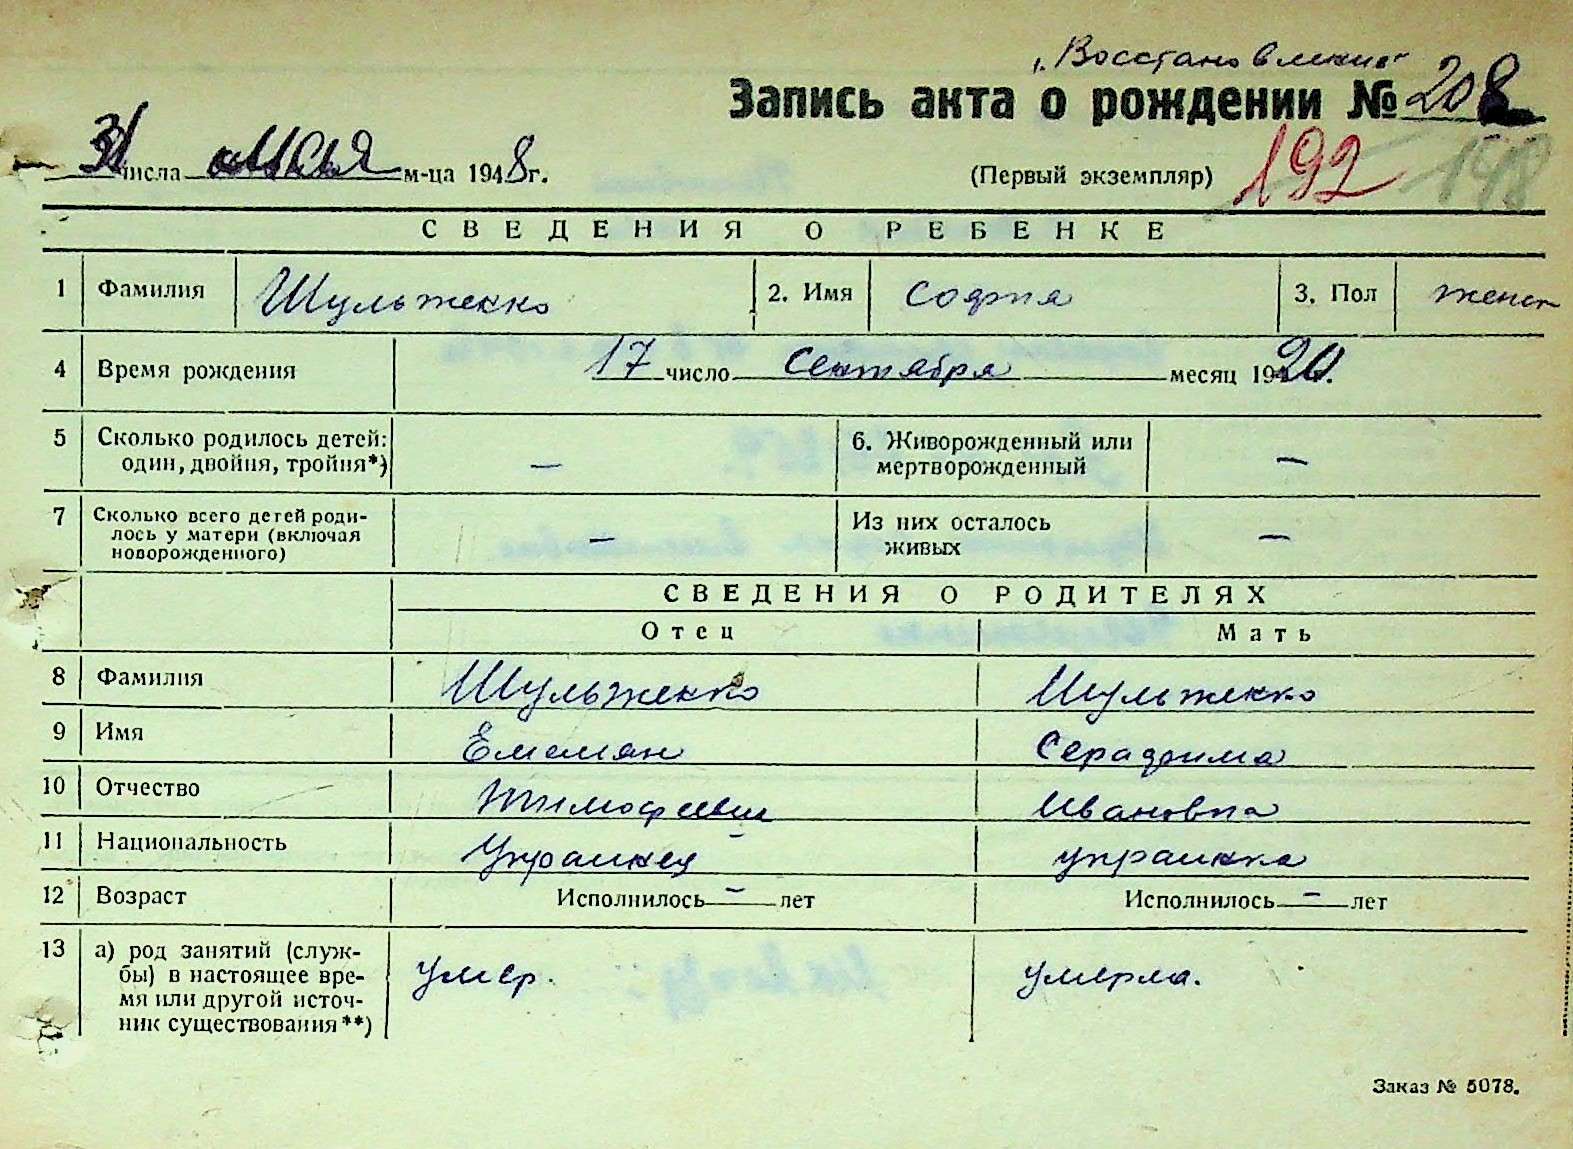 „Восстановление"
Запись акта о рождении № 208
31 числа мая м-ца 1948 г.
(Первый экземпляр) 192 148
СВЕДЕНИЯ О РЕБЕНКЕ
1 Фамилия Шульженко 2. Имя София 3. Пол женск
4 Время рождения 17 число Сентября месяц 1920 г.
5 Сколько родилось детей: 6. Живорожденный или
один, двойня, тройня*) — мертворожденный —
7 Сколько всего детей роди- Из них осталось
лось у матери (включая — живых —
новорожденного)
СВЕДЕНИЯ О РОДИТЕЛЯХ
Отец Мать
8 Фамилия Шульженко Шульженко
9 Имя Емельян Серафима
10 Отчество Тимофеевич Ивановна
11 Национальность Украинец украинка
12 Возраст Исполнилось — лет Исполнилось — лет
13 а) род занятий (служ-
бы) в настоящее вре- умер. умерла.
мя или другой источ-
ник существования**)
Заказ № 5078.